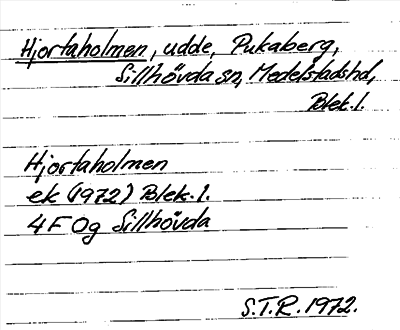 Hjortaholmen, udde, Pukaberg,
Sillhövda sn, Medelstadshd,
Blek.l.
Hjortaholmen
ek (1972) Blek.l.
4F Og Sillhövda
S.T.R. 1972.